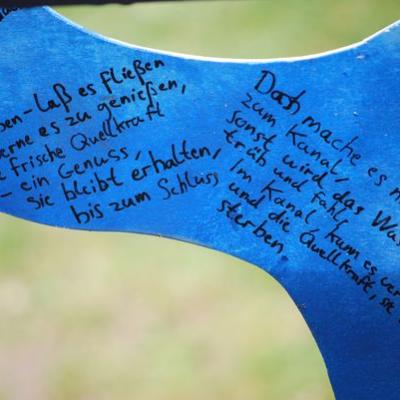 ben - laß es fließen
erne es zu genießen,
e frische Quellkraft
– ein Genuss,
sie bleibt erhalten,
bis zum Schluss,
Doch mache es n
zum Kanal,
sonst wird das Was
trüb und fahl,
Im Kanal, kann es ver
und die Quellkraft, sie
sterben,